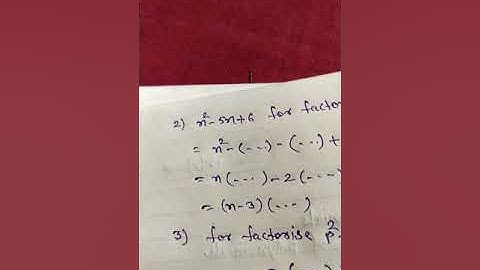 2) n² - 5n + 6 for factor
= n² - (---) - (---) +
= n (---) - 2 (---)
= (n-3) (---)
3) for factorise p²